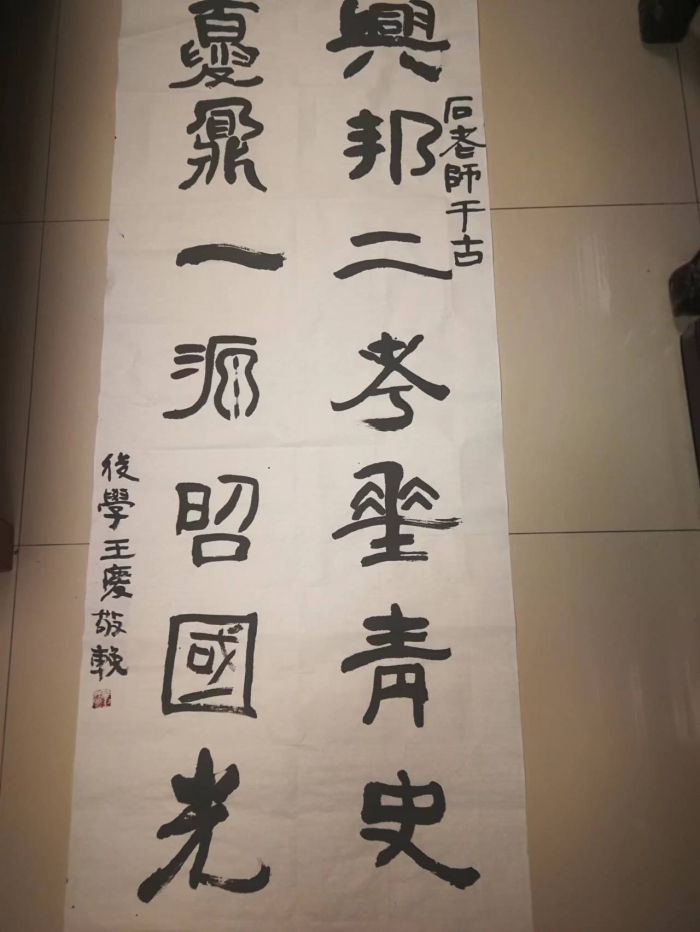 石老師千古
興邦二考垂青史
夏鼎一源昭國光
後學王慶敬輓